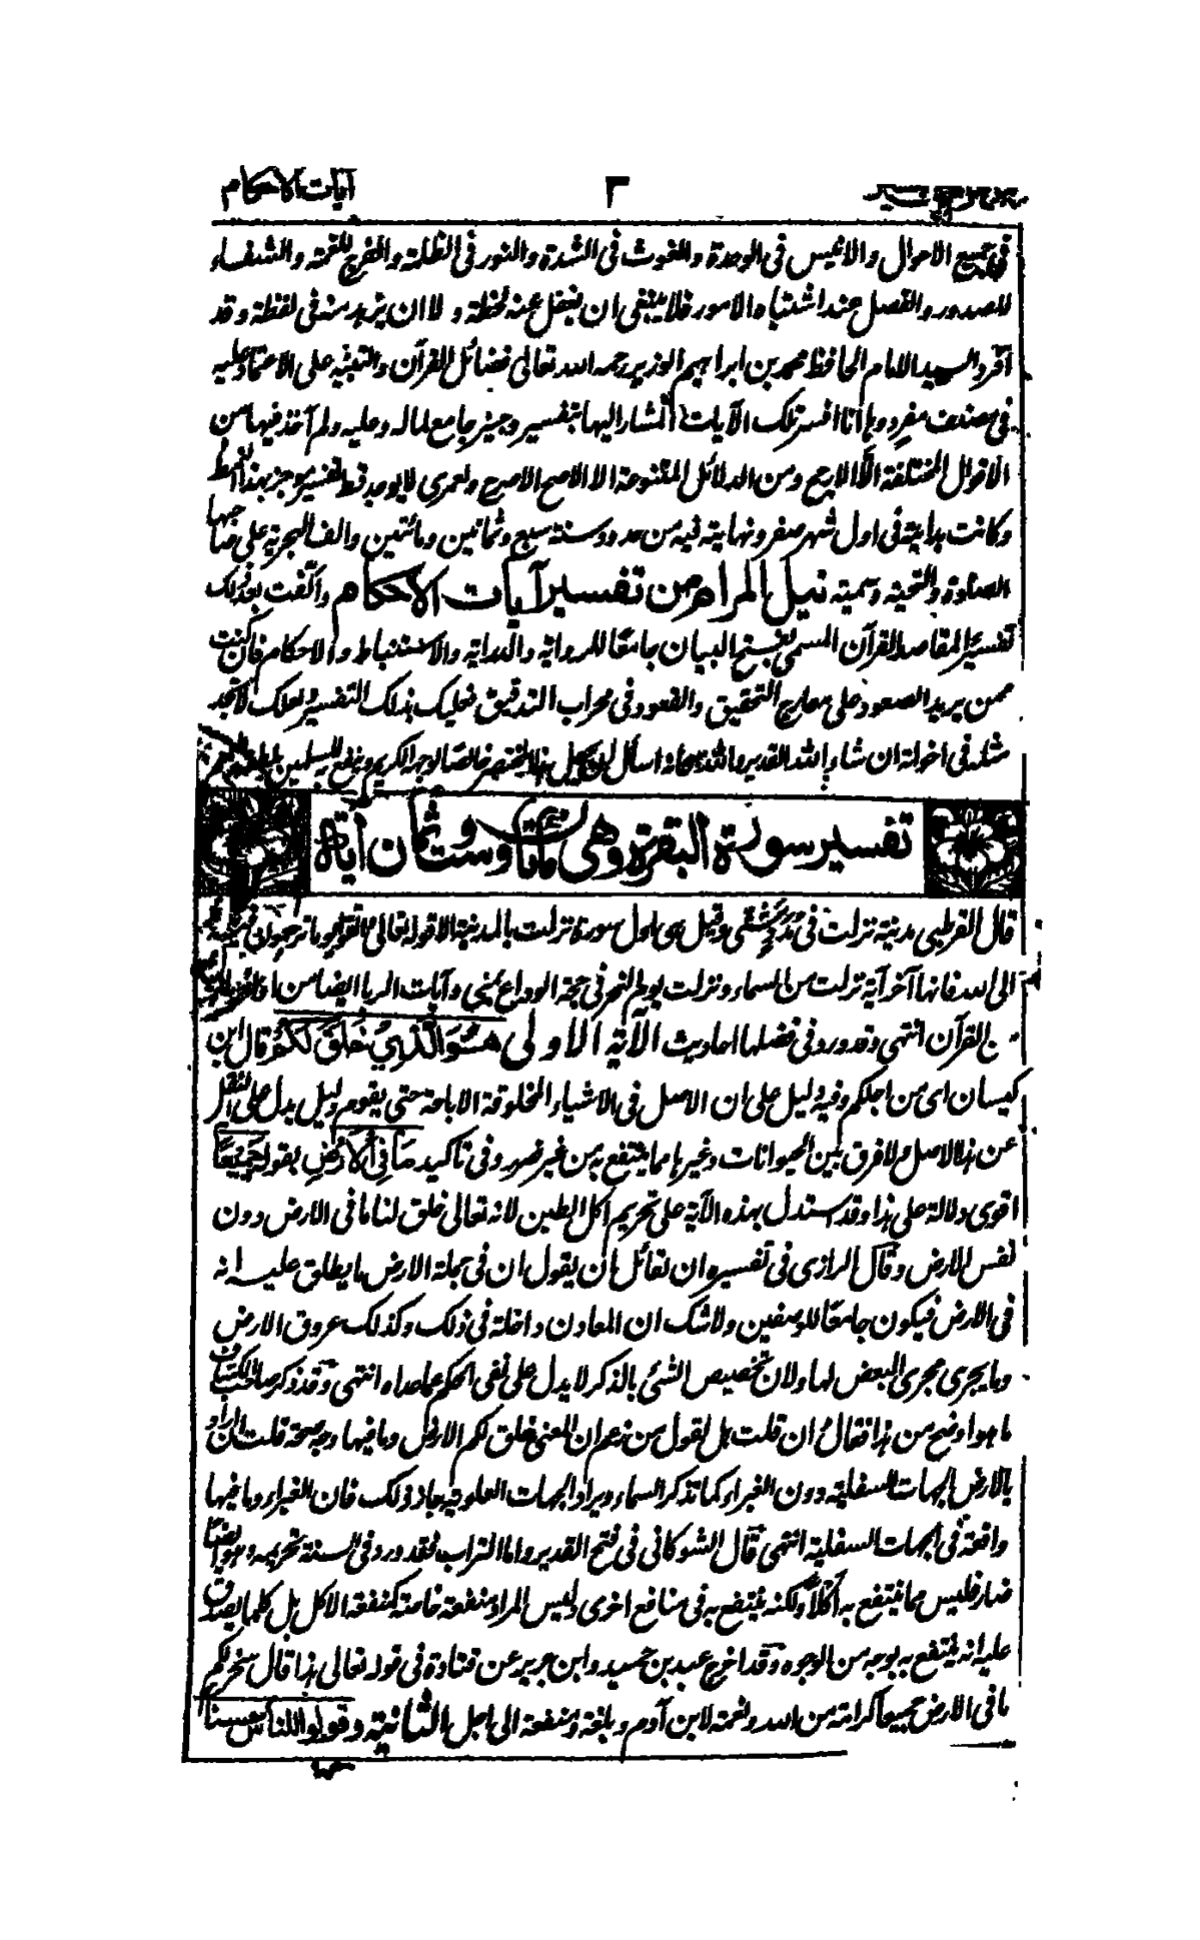 آيات الاحكام
٣
في جميع الاحوال والانيس في الوحدة والغوث في الشدة والنور في الظلمة والفرج للغمة والشفاء
للصدور والفصل عند اشتباه الامور فلا ينبغي ان يغفل عنه لحظة ولا ان يزهد منه في لفظة وقد
افرد السيد الامام الحافظ محمد بن ابراهيم الوزير رحمه الله تعالى فضائل القرآن والتنبيه على الاعتماد عليه
في مصنف مفرد وها انا افسر تلك الآيات المشار اليها بتفسير وجيز جامع لما له وعليه ولم آخذ فيها من
الاقوال المختلفة الا الارجح ومن الدلائل المتنوعة الا الاصح الاصرح ولعمري لا يوجد قط تفسير موجز بهذا النمط
وكانت بدايته في اول شهر صفر ونهايته فيه من حدود سنة سبع وثمانين ومائتين والف الهجرية على صاحبها
الصلوة والتحية وسميته نيل المرام من تفسير آيات الاحكام والفت بعد ذلك
تفسيرا لمقاصد القرآن المسمى بفتح البيان جامعا للرواية والدراية والاستنباط والاحكام فان كنت
ممن يريد الصعود على معارج التحقيق والقعود في محراب التدقيق فعليك بذلك التفسير لعلك لا تجد
مثله في اخواته ان شاء الله القدير والله سبحانه اسأل ان يجعل هذا المختصر خالصا لوجهه الكريم وينفع به المسلمين
تفسير سورة البقرة وهي مائتان وست وثمانون آية
قال القرطبي مدنية نزلت في مدد شتى وقيل هي اول سورة نزلت بالمدينة الا قوله تعالى واتقوا يوما ترجعون فيه
الى الله فانها آخر آية نزلت من السماء ونزلت يوم النحر في حجة الوداع بمنى وآيات الربا ايضا من اواخر ما نزل
من القرآن انتهى وقد ورد في فضلها احاديث الآية الاولى هُوَ الَّذِي خَلَقَ لَكُمْ قال ابن
كيسان اى من اجلكم وفيه دليل على ان الاصل في الاشياء المخلوقة الاباحة حتى يقوم دليل يدل على النقل
عن هذا الاصل ولا فرق بين الحيوانات وغيرها مما ينتفع به من غير ضرر وفي تاكيد مَا فِي الْاَرْضِ بقوله جَمِيْعًا
اقوى دلالة على هذا وقد استدل بهذه الآية على تحريم اكل الطين لانه تعالى خلق لنا ما في الارض دون
نفس الارض وقال الرازي في تفسيره ان لقائل ان يقول ان في جملة الارض ما يطلق عليه انه
في الارض فيكون جامعا للوصفين ولا شك ان المعادن داخلة في ذلك وكذلك عروق الارض
وما يجرى مجرى البعض لها ولان تخصيص الشئ بالذكر لا يدل على نفى الحكم عما عداه انتهى وقد ذكر صاحب الكشاف
ما هو اوضح من هذا فقال ان قلت هل لقول من زعم ان المعنى خلق لكم الارض وما فيها وجه صحة قلت ان اراد
بالارض الجهات السفلية دون الغبراء كما تذكر السماء ويراد الجهات العلوية جاز ذلك فان الغبراء وما فيها
واقعة في الجهات السفلية انتهى قال الشوكاني في فتح القدير واما التراب فقد ورد في السنة تحريمه وهو ايضا
ضار فليس مما ينتفع به اكلا ولكنه ينتفع به في منافع اخرى وليس المراد منفعة خاصة كمنفعة الاكل بل كلما يصدق
عليه انه ينتفع به بوجه من الوجوه وقد اخرج عبد بن حميد وابن جرير عن قتادة في قوله تعالى هذا قال سخر لكم
ما في الارض جميعا كرامة من الله ونعمة لابن آدم وبلغة ومنفعة الى اجل الثانية وقولوا للناس حسنا